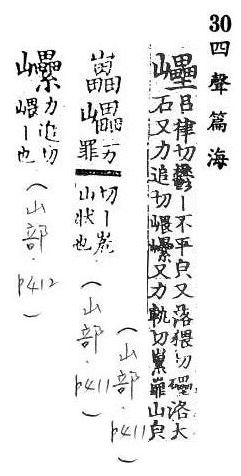 30 四聲篇海
吕律切鬱丨不平皃又落猥切洛大
石又力追切又力軌切嶵山皃
(山部.p411)
力切丨
罪山狀也
(山部.p411)
力追切
丨也
(山部.p412)